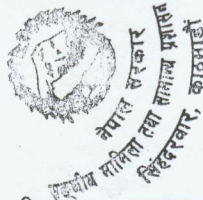 नेपाल सरकार
सङ्घीय मामिला तथा सामान्य प्रशासन
सिंहदरवार, काठमाडौं